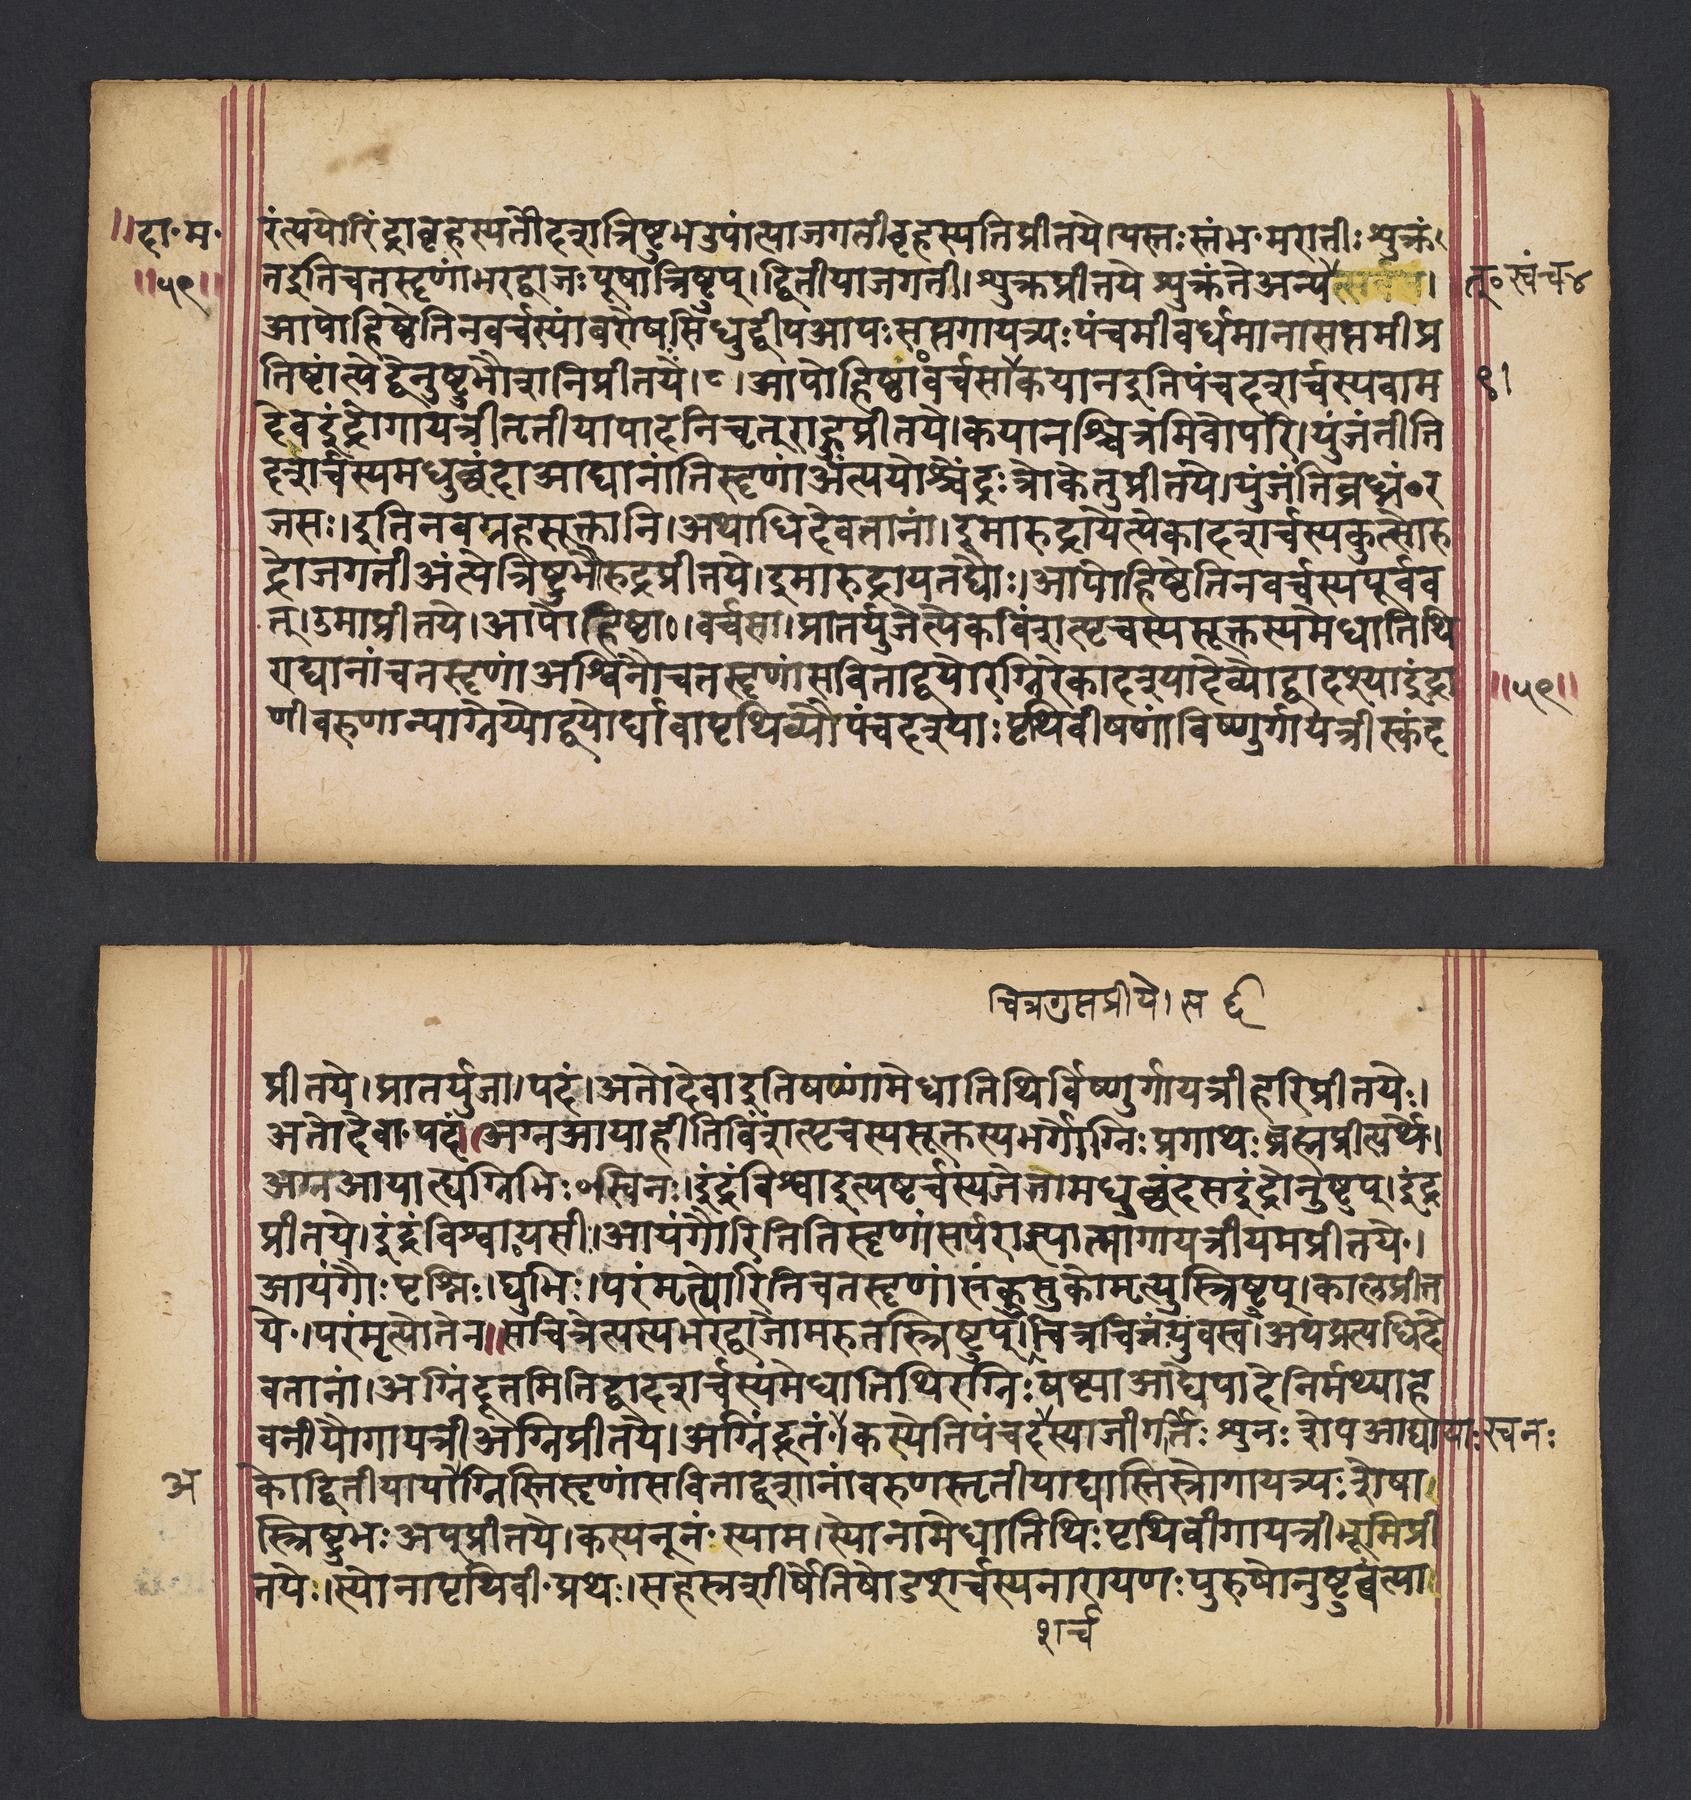 ॥दा॰म॰
॥५९॥
रंत्ययोरिंद्राबृहस्पतीदशत्रिष्टुभउपांत्याजगतीबृहस्पतिप्रीतये।यस्तःस्तंभ॰मरातीः शुक्रं
तइतिचतसृणांभरद्वाजःपूषात्रिष्टुप्।द्वितीयाजगती।शुक्रप्रीतये शुक्रंतेअन्य
तु॰ त्वंच४
आपोहिष्ठेतिनवर्चस्यांबरीष.सिंधुद्वीपआपःसप्तगायत्र्यःपंचमीवर्धमानासप्तमीप्र
तिष्टांत्येद्वेनुष्टुभौशनिप्रीतये।८।आपोहिष्ठा॰वर्चसा।कयानइतिपंचदशर्चस्यवाम
९।
देवइंद्रोगायत्रीतृतीयापादनिचृत्‌राहुप्रीतये।कयानश्चित्रमिवोपरि।युंजंतीति
दशर्चस्यमधुच्छंदाआद्यानांतिसृणांअंत्ययोश्चेंद्रः त्रोकेतुप्रीतये।युंजंतिब्रध्नं॰र
जसः।इतिनवग्रहसूक्तानि।अथाधिदेवतानां।इमारुद्रायेत्येकादशर्चस्यकुत्सोरु
द्रोजगतीअंत्येत्रिष्टुभौरुद्रप्रीतये।इमारुद्रायतद्यौः।आपोहिष्ठेतिनवर्चस्यपूर्वव
त्।उमाप्रीतये।आपोहिष्ठा॰।वर्चसा।प्रातर्युजेत्येकविंशत्यृचस्यसूक्तस्यमेधातिथि
राद्यानांचतसृणांअश्विनौचतसृणांसविताद्वयोरग्निरेकादश्यादेव्योद्वादश्याइंद्रा
॥५९॥
णीवरुणान्याग्नेय्योद्वयोर्द्यावापृथिव्यौपंचदश्याःपृथिवीषणांविष्णुर्गायत्रीस्कंद
चित्रगुप्तप्रीये।ल ६
प्रीतये।प्रातर्युजा।पदं।अतोदेवाइतिषण्णांमेधातिथिर्विष्णुर्गायत्रीहरिप्रीतयेः।
अतोदेवा॰पदं॥अग्नआयाहीतिविंशत्यृचस्यसूक्तस्यभर्गोग्निःप्रगाथःब्रह्मप्रीत्यर्थे।
अग्नआयाह्यग्निभिः॰स्विनः।इंद्रंविश्वाइत्यष्टर्चस्यजेतामधुच्छंदसइंद्रोनुष्टुप्।इंद्र
प्रीतये।इंद्रंविश्वा॰यसीः।आयंगौरितितिसृणांसर्पराज्यात्मागायत्रीयमप्रीतये॰।
आयंगौःपृश्निः।द्युभिः।परंमृत्योरितिचतसृणांसंकुसुकोमृत्युस्त्रिष्टुप्।कालप्रीत
ये॰।परंमृत्योतेन॥सचित्रेत्यस्यभरद्वाजोमरुतस्त्रिष्टुप्।चित्रचित्रंयुवस्व।अथप्रत्यधिदे
वतानां।अग्निंदूतमितिद्वादशर्चस्यमेधातिथिरग्निःषष्ठ्याआद्येपादेनिर्मथ्याह
वनीयोगायत्रीअग्निप्रीतये।अग्निंदूतं॰।कस्येतिपंचदस्याजीगर्तिः शुनः शेपआद्यायाः
स्वनः
अ
कोद्वितीयायाअग्निस्तिसृणांसविताद्वशानांवरुणस्तृतीयाद्यास्तिस्रोगायत्र्यःशेषा
स्त्रिष्टुभःअपुप्रीतये।कस्यनूनंःस्याम।स्योनामेधातिथिःपृथिवीगायत्रीभूमिप्री
तयेः।स्योनापृथिवी॰प्रथः।सहस्रशीर्षेतिषोडशर्चस्यनारायणःपुरुषोनुष्टुबंत्या
शर्च